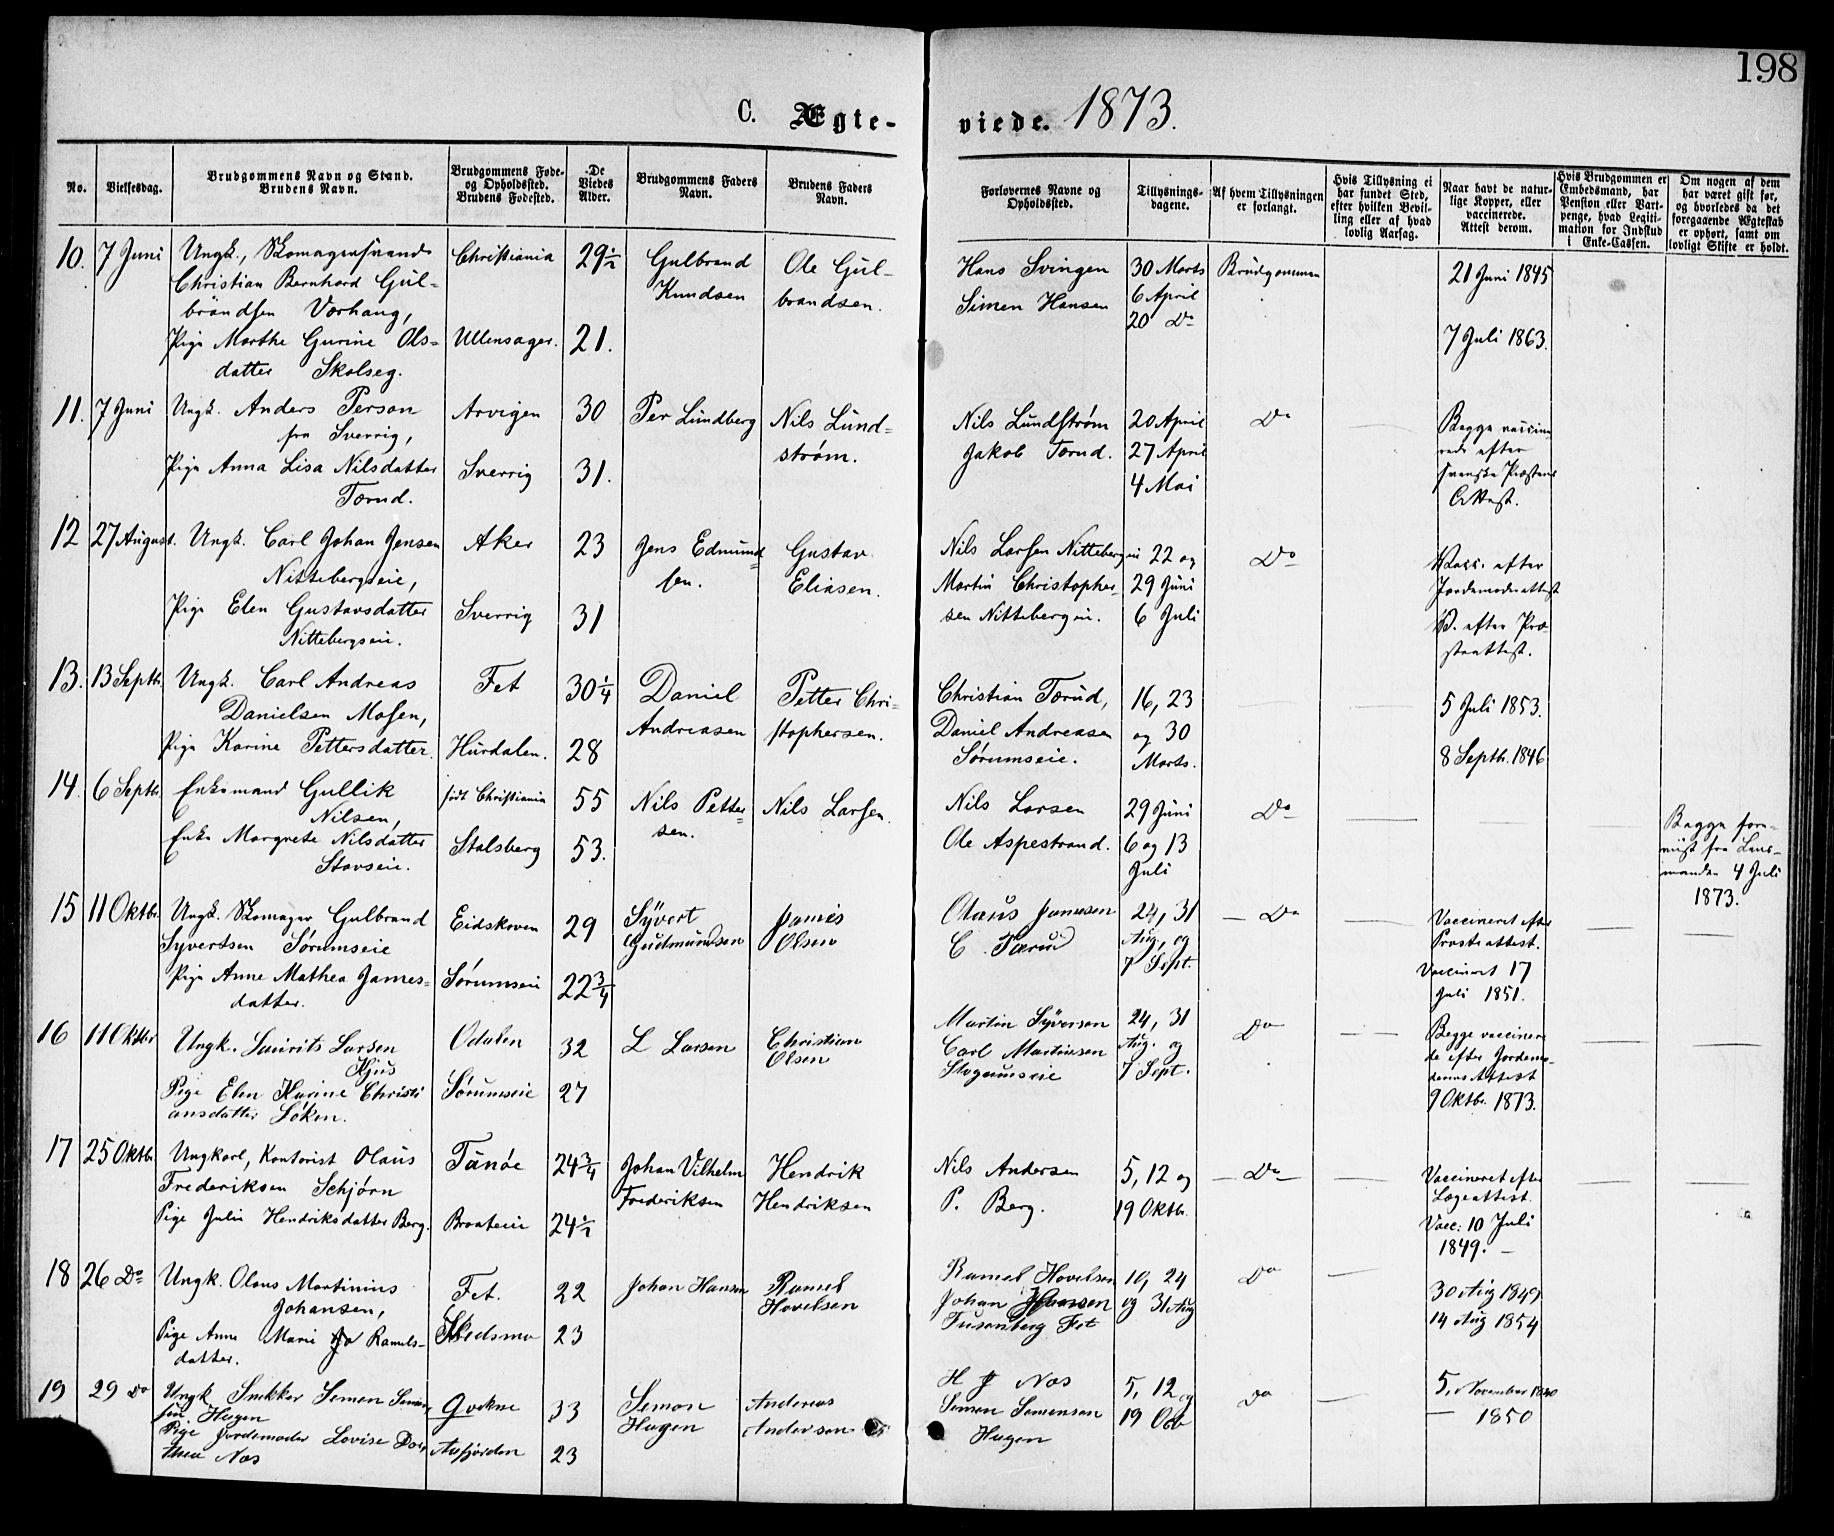 198
C. Ægte- viede. 1873.
No.
Vielsesdag.
Brudgommens Navn og Stand.
Brudens Navn.
Brudgommens Føde-
og Opholdssted.
Brudens Fødested.
De
Viedes
Alder.
Brudgommens Faders
Navn.
Brudens Faders
Navn.
Forlovernes Navne og
Opholdssted.
Tillysnings-
dagene.
Af hvem Tillysningen
er forlangt.
Hvis Tillysning ei
har fundet Sted,
efter hvilken Bevil-
ling eller af hvad
lovlig Aarsag.
Naar havt de natur-
lige Kopper, eller
vaccinerede.
Attest derom.
Hvis Brudgommen er
Embedsmand, har
Pension eller Vart-
penge, hvad Legiti-
mation for Indskud
i Enke-Cassen.
Om nogen af dem
har været gift før,
og hvorledes da det
foregaaende Ægteskab
er ophørt, samt om
lovligt Skifte er holdt.
10. 7 Juni
Ungk., Skomagersvend
Christian Bernhard Gul-
brandsen Vorhaug,
Pige Marthe Gurine Ols-
datter Skolseg.
Christiania
Ullensager.
29½
21.
Gulbrand
Knudsen
Ole Gul-
brandsen.
Hans Svingen
Simen Hansen
30 Marts
6 April
20 Do
Brudgommen
21 Juni 1845
7 Juli 1863.
11. 7 Juni
Ungk. Anders Person
fra Sverrig,
Pige Anna Lisa Nilsdatter
Torud.
Arvigen
Sverrig
30
31.
Per Lundberg
Nils Lund-
strøm.
Nils Lundstrøm
Jakob Torud.
20 April
27 April
4 Mai
Do
Begge vaccine
rede efter
svenske Præstens
Attest.
12 27 August.
Ungk. Carl Johan Jensen
Nittebergseie,
Pige Elen Gustavsdatter
Nittebergseie.
Aker
Sverrig
23
31
Jens Edmund-
sen.
Gustav
Eliasen.
Nils Larsen Nittebergeie
Martin Christopher-
sen Nittebergeie.
22 og
29 Juni
6 Juli
Do
Vacc. efter
Jordemoderattest
V. efter Præ-
steattest.
13. 13 Septb.
Ungk. Carl Andreas
Danielsen Mosen,
Pige Karine Pettersdatter
Fet
Hurdalen.
30¼
28
Daniel
Andreasen
Petter Chri-
stophersen.
Christian Torud,
Daniel Andreasen
Sørumseie.
16, 23
og 30
Marts.
5 Juli 1853.
8 Septb. 1846
14. 6 Septb.
Enkemand Gullik
Nilsen,
Enke Margrete Nilsdatter
Stovseie.
født Christiania
Stalsberg
55
53.
Nils Petter-
sen.
Nils Larsen.
Nils Larsen
Ole Aspestrand.
29 Juni
6 og 13
Juli
Do
Begge fore-
viist fra Lens-
manden 4 Juli
1873.
15 11 Oktbr.
Ungk. Skomager Gulbrand
Syvertsen Sørumseie
Pige Anne Mathea James-
datter.
Eidskoven
Sørumseie
29
22¾
Syvert
Gudmundsen
James
Olsen
Olaus Jamesen
C. Tærud
24, 31
Aug. og
7 Sept.
Do
Vaccineret efter
Præsteattest.
Vaccineret 17
Juli 1851.
16 11 Oktbr
Ungk. Laurits Larsen
Kjus
Pige Elen Karine Christi
ansdatter Løken.
Odalen
Sørumseie
32
27
L Larsen
Christian
Olsen
Martin Syversen
Carl Martinsen
24, 31
Aug. og
7 Sept.
Do
Begge vaccinere
de efter Jordemo-
derens Attest
9 Oktbr. 1873.
17 25 Oktbr.
Ungkarl, Kontorist Olaus
Frederiksen Schjørn
Pige Julie Hendriksdatter Berg.
Tanøe
Braateeie
24¾
24½
Johan Vilhelm
Frederiksen
Hendrik
Hendriksen
Nils Andersen
P. Berg.
5, 12 og
19 Oktb.
Do
Vaccineret efter
Lægeattest.
Vacc: 10 Juli
1849.
18 26 Do
Ungk. Olaus Martinius
Johansen,
Pige Anne Marie Ramels-
datter.
Fet.
Skedsmo
22
23
Johan Hansen
Ramel
Hovelsen
Ramel Hovelsen
Johan Hansen
Tusenberg Fet
10, 24
og 31 Aug
Do
30 Aug 1849
14 Aug 1854
19 29 Do
Ungk Snekker Semen Semen
sen Haugen
Pige Jordemoder Lovise Doro
thea Næs
33
23
Semen
Haugen
Andreas
Andersen
H J Næs
Semen Semensen
Haugen
5, 12 og
19 Oct
Do
5, November 1840
1850